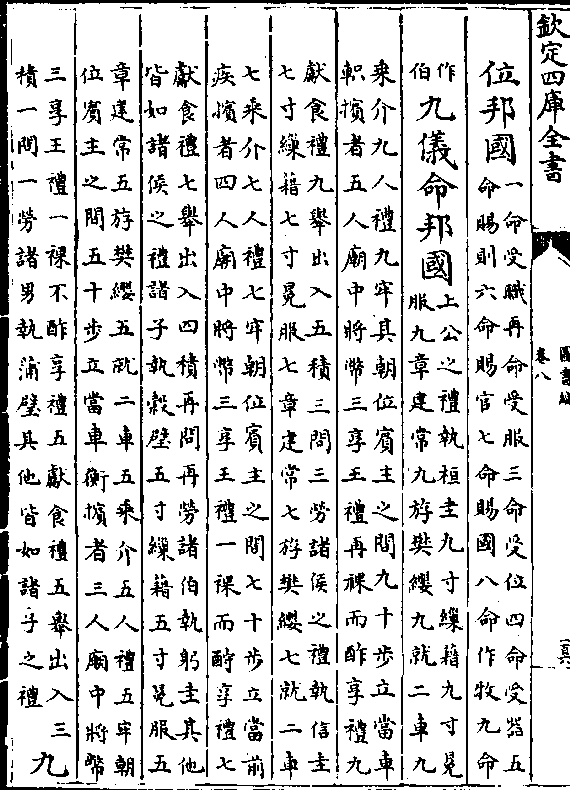 欽定四庫全書
圖書編
卷八
位邦國
一命受職再命受服三命受位四命受器五
命賜則六命賜官七命賜國八命作牧九命
作
伯
九儀命邦國
上公之禮執桓圭九寸繅藉九寸冕
服九章建常九斿樊纓九就二車九
乘介九人禮九牢其朝位賓主之間九十步立當車
軹擯者五人廟中將幣三享王禮再祼而酢享禮九
獻食禮九舉出入五積三問三勞諸侯之禮執信圭
七寸繅藉七寸冕服七章建常七斿樊纓七就二車
七乘介七人禮七牢朝位賓主之間七十步立當前
疾擯者四人廟中將幣三享王禮一祼而酢享禮七
獻食禮七舉出入四積再問再勞諸伯執躬圭其他
皆如諸侯之禮諸子執穀璧五寸繅藉五寸冕服五
章建常五斿樊纓五就二車五乘介五人禮五牢朝
位賓主之間五十步立當車衡擯者三人廟中將幣
三享王禮一祼不酢享禮五獻食禮五舉出入三
積一問一勞諸男執蒲璧其他皆如諸子之禮
九